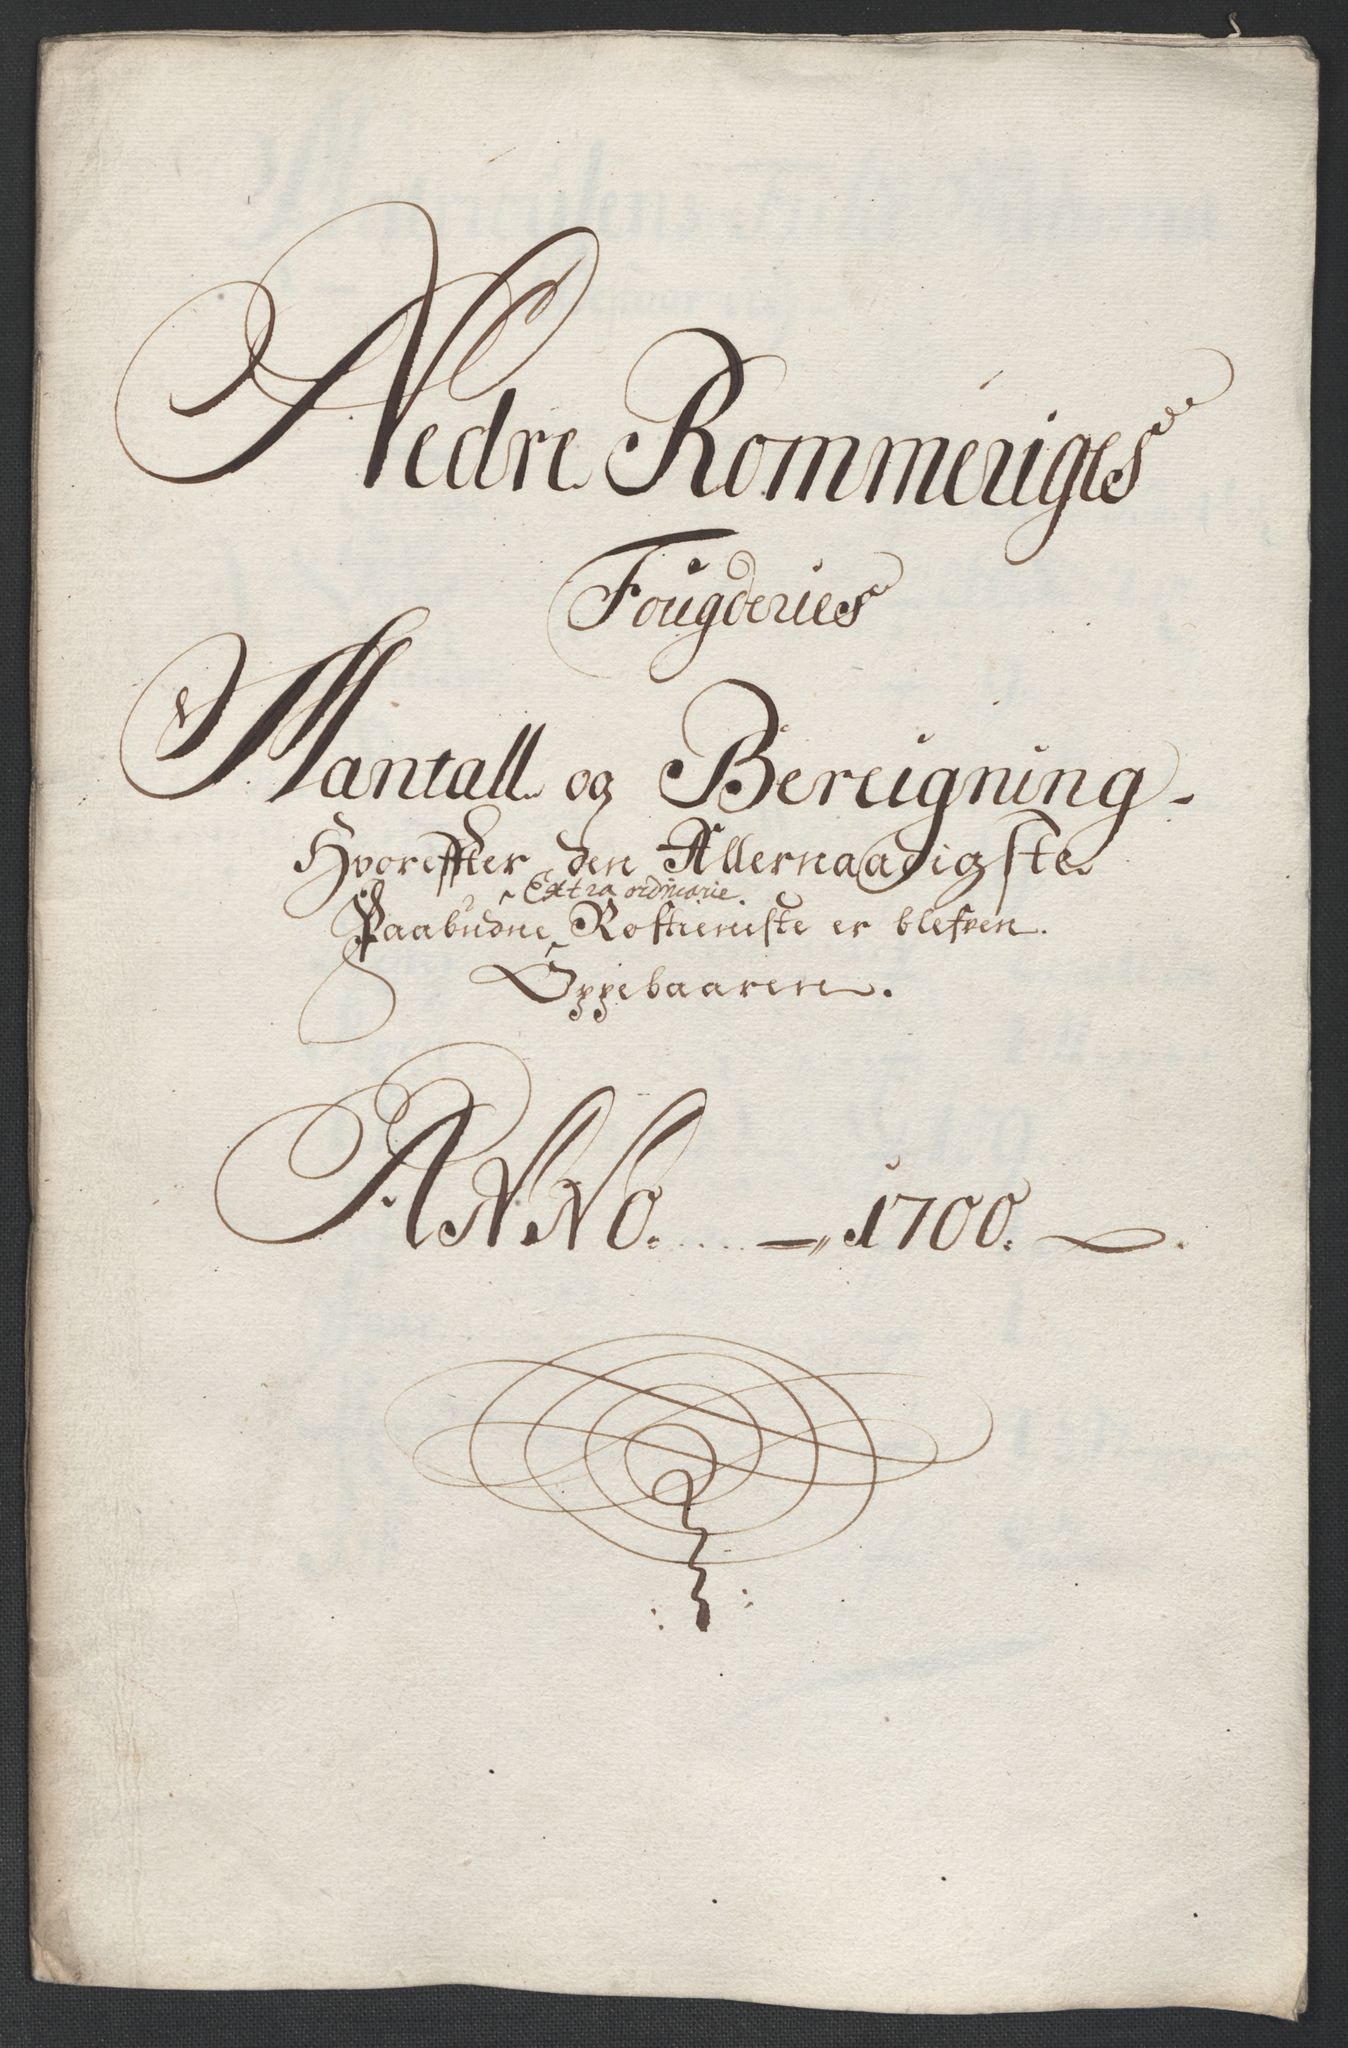 Nedre Rommeriges
Fougderies
Mantall og Bereigning
Hvoreffter den Allernaadigste
Extra ordinarie
Paabudne Rostieniste er blefven
Oppebaaren.
ANNO. 1700.